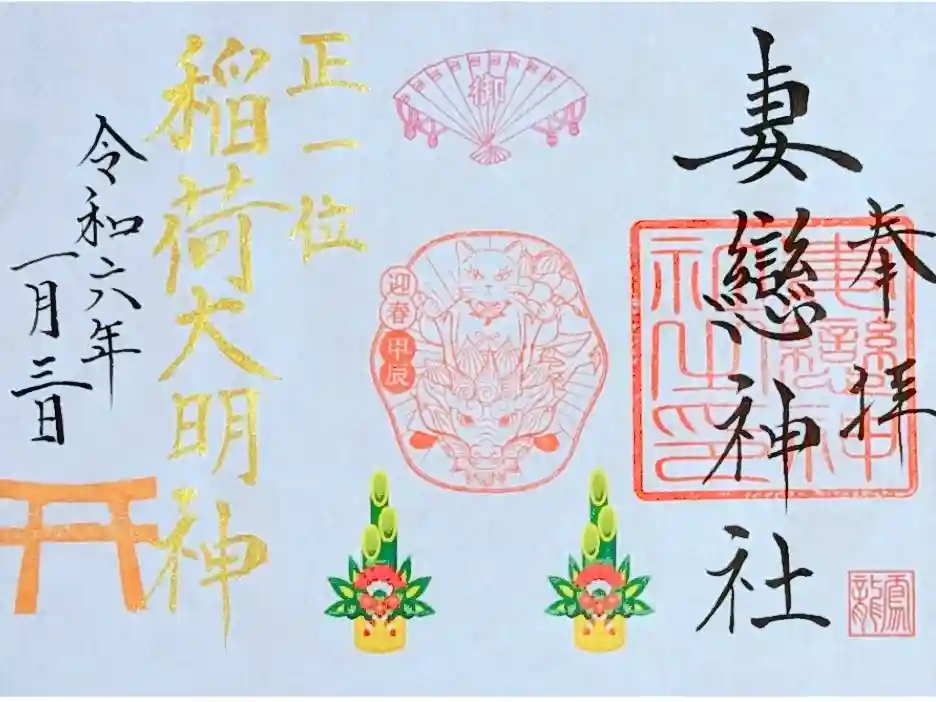 奉拝
妻戀神社
妻戀神社之印
鳳龍
御
迎春
甲辰
正一位
稲荷大明神
令和六年
一月三日